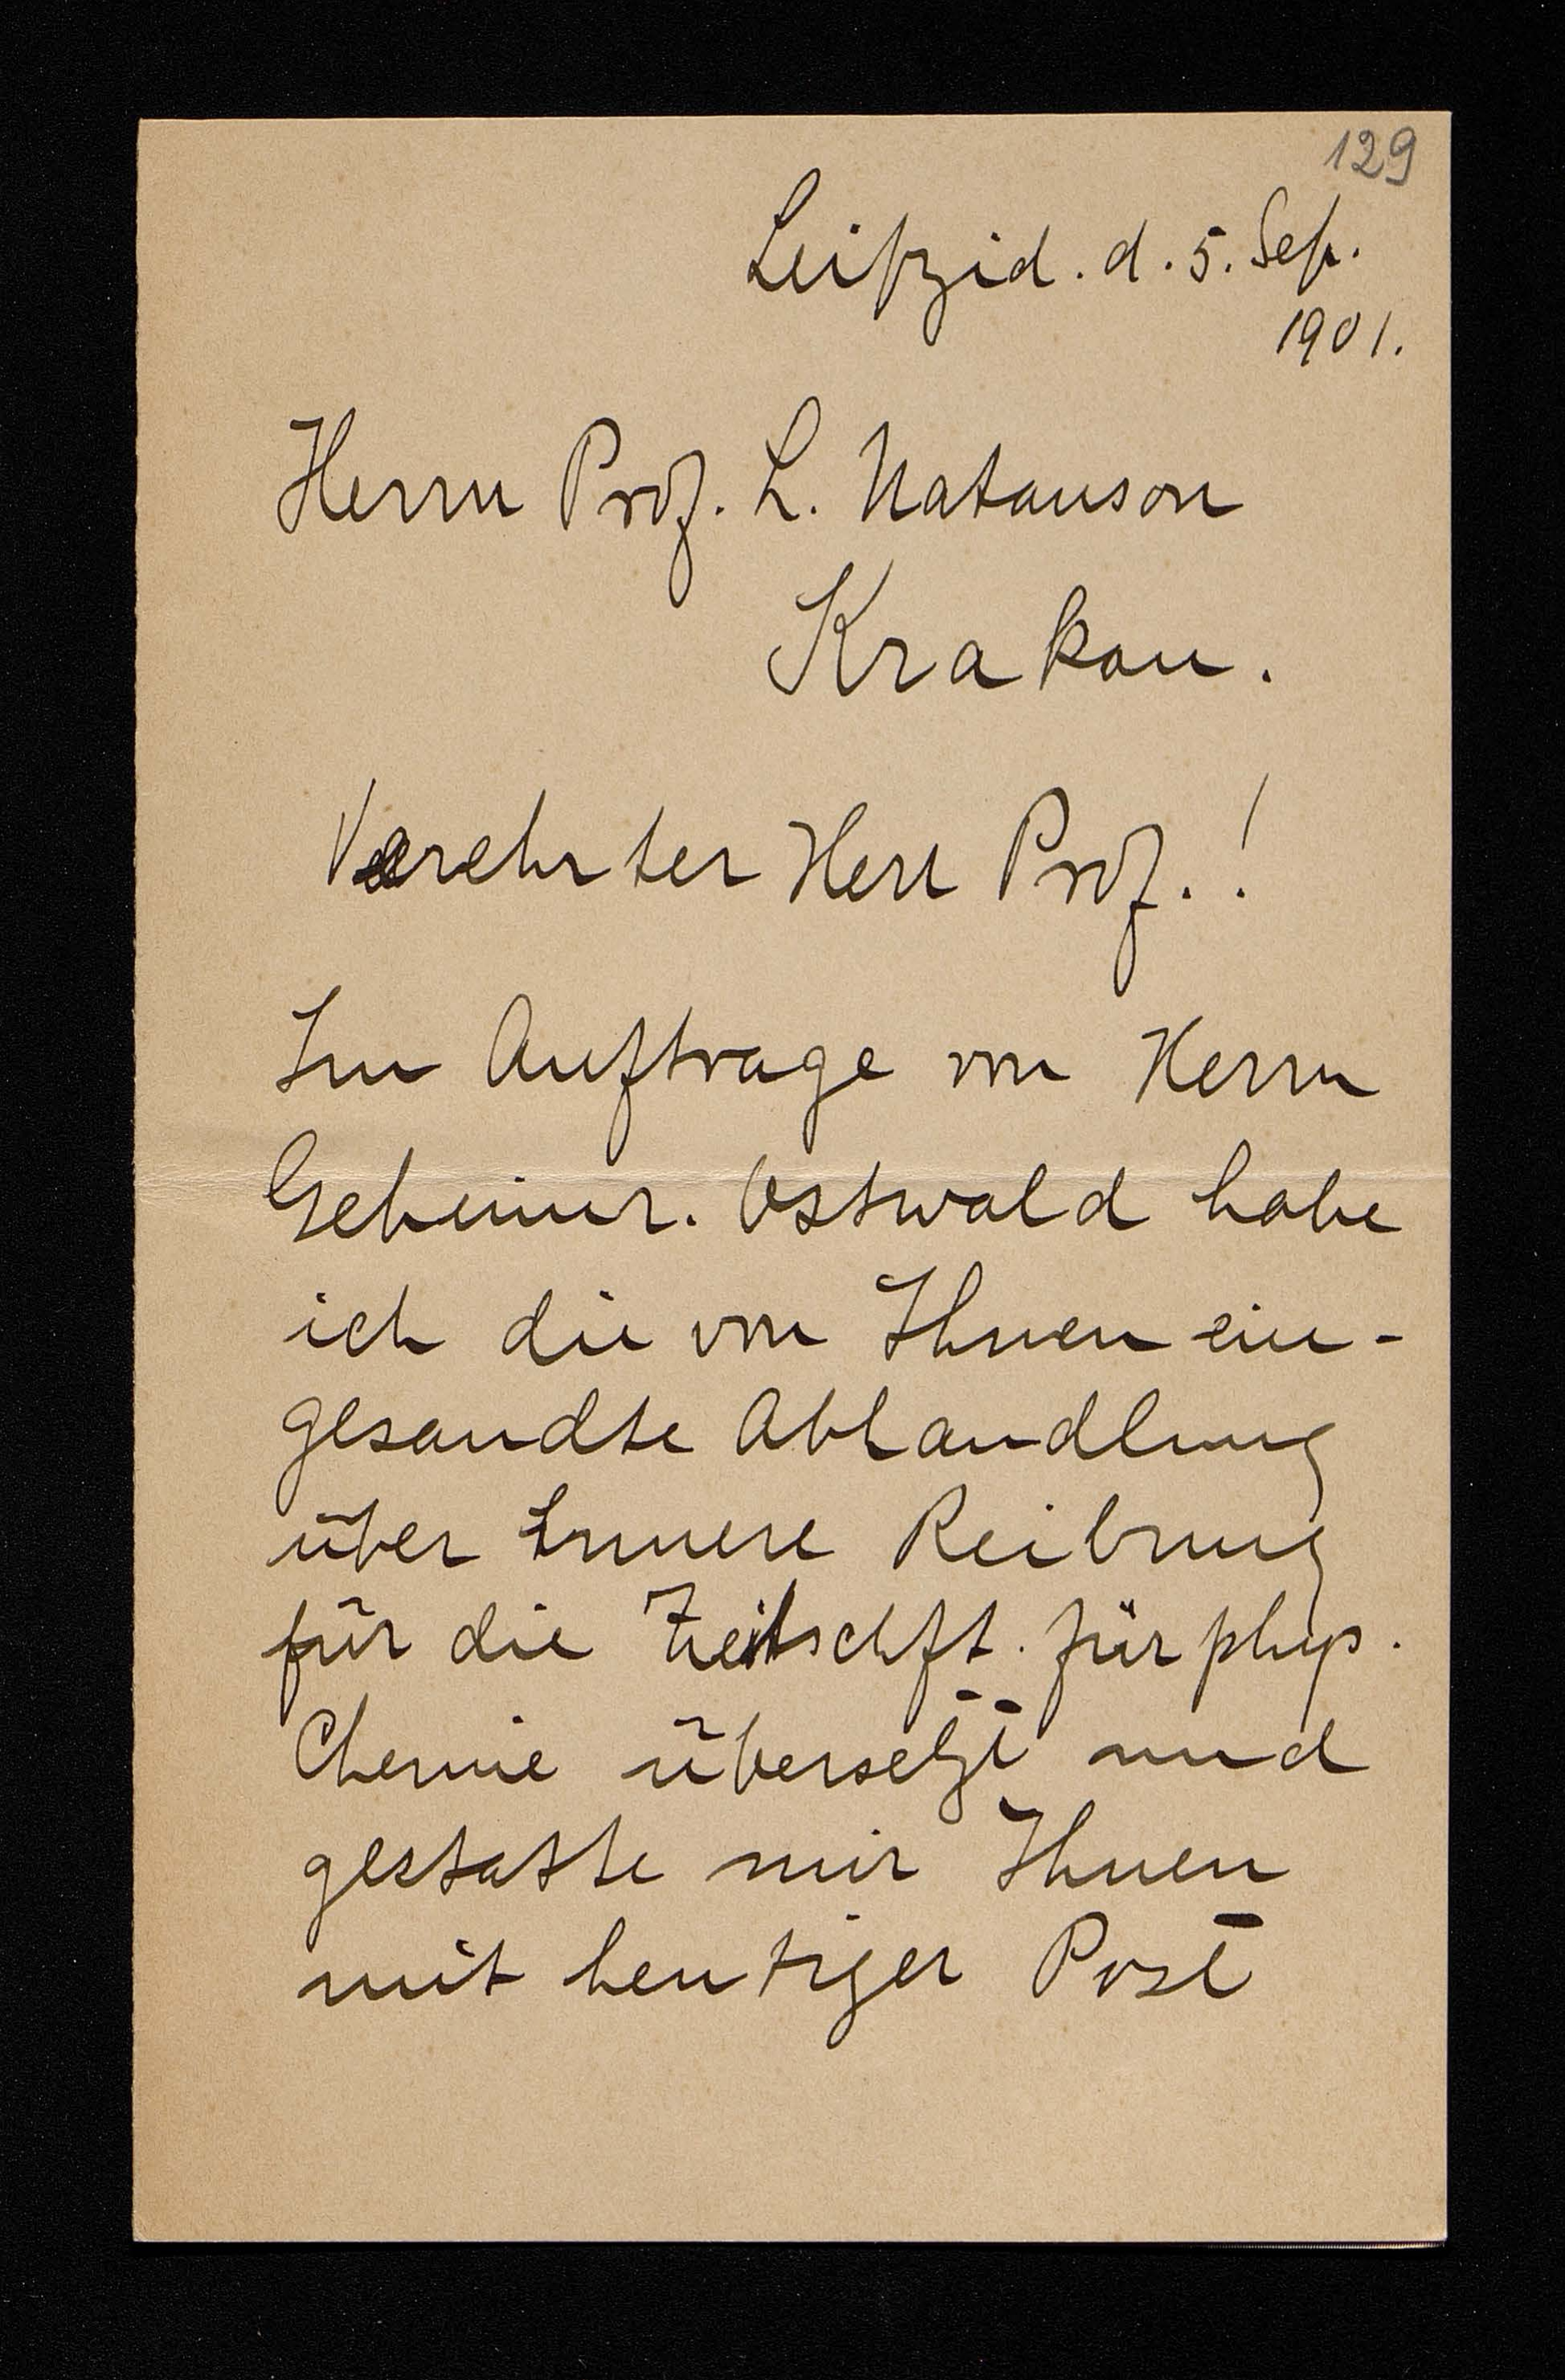 129
Leipzid. d. 5. Sep.
1901.
Herrn Prof. L. Natanson
Krakau.
Verehrter Herr Prof.!
Im Auftrage von Herrn
Geheimr. Ostwald habe
ich die von Ihnen ein-
gesandte Abhandlung
über Innere Reibung
für die Zeitschft. für phys.
Chemie übersetzt und
gestatte mir Ihnen
mit heutiger Post